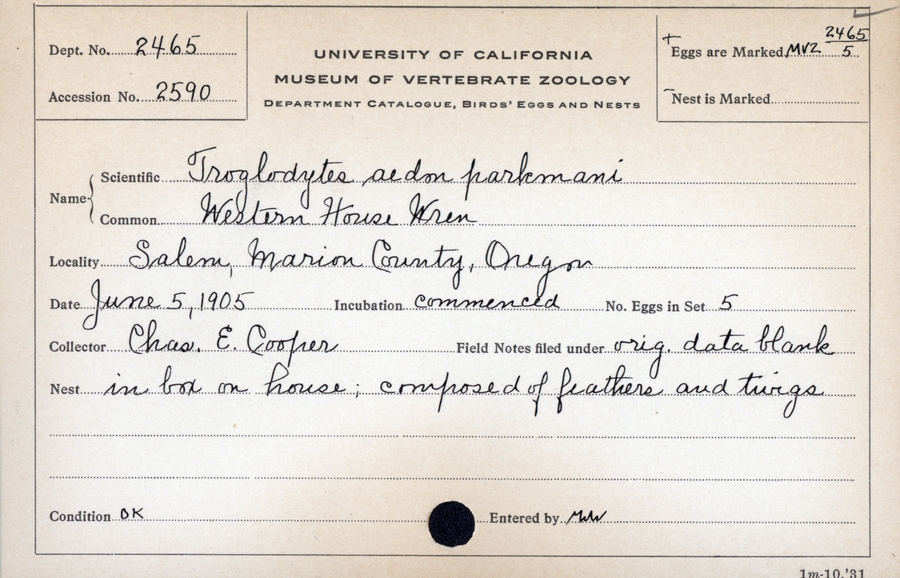 Dept. No. 2465
Accession No. 2590
UNIVERSITY OF CALIFORNIA
MUSEUM OF VERTEBRATE ZOOLOGY
DEPARTMENT CATALOGUE, BIRDS' EGGS AND NESTS
+ Eggs are Marked MVZ 2465/5
- Nest is Marked
Name { Scientific Troglodytes aedon parkmani
Common Western House Wren
Locality Salem, Marion County, Oregon
Date June 5, 1905 Incubation commenced No. Eggs in Set 5
Collector Chas. E. Cooper Field Notes filed under orig. data blank
Nest in box on house; composed of feathers and twigs
Condition OK Entered by
1m-10,'31